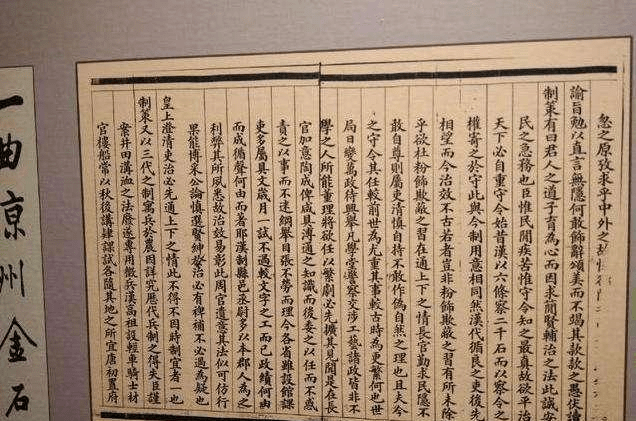 忽之原孜求乎中外之故
諭旨勉以直言無隱何敢飾辭頌美而不竭其款款之愚伏讀
制策有曰君人之道子育為心而因求簡賢輔治之法此誠安
民之急務也臣惟民閒疾苦惟守令知之最真故欲平治
天下必自重守令始昔漢以六條察二千石而以察令之
權寄之於守此與今制用意相同然漢代循良之吏後先
相望而今治效不古若者豈非粉飾欺蔽之習有所未除
乎欲杜粉飾欺蔽之習在通上下之情長官勤求民隱不
敢自尊則屬吏清慎自持不敢作偽自然之理也且夫今
之守令其任較前世為尤重其事較古時為更繁何也世
局日變萬政待興舉凡學堂警察交涉工藝諸政皆非不
學之人所能董理將欲任以繁劇必先擴其見聞是在長
官加意陶成俾咸具溥通之知識而後委之以任而不惑
責之以事而不迷綱舉目張不勞而理今各省雖設館課
吏多屬具文歲月一試不過較文字之工而已政績何由
而成循聲何由而著耶漢制縣邑丞尉多以本郡人為之
利弊其所夙悉故治效易彰此周官遺意其法似可仿行
果能博采公論慎選賢紳於治必有裨補不必過為疑也
皇上澄清吏治必先通上下之情此不得不因時制宜者一也
制策又以三代之制寓兵於農因詳究歷代兵制之得失臣謹
案井田溝洫之法廢遂專用徵兵漢高祖設輕車騎士材
官樓船常以秋後講肄課試各隨其地之所宜唐初置府
一曲涼州金石